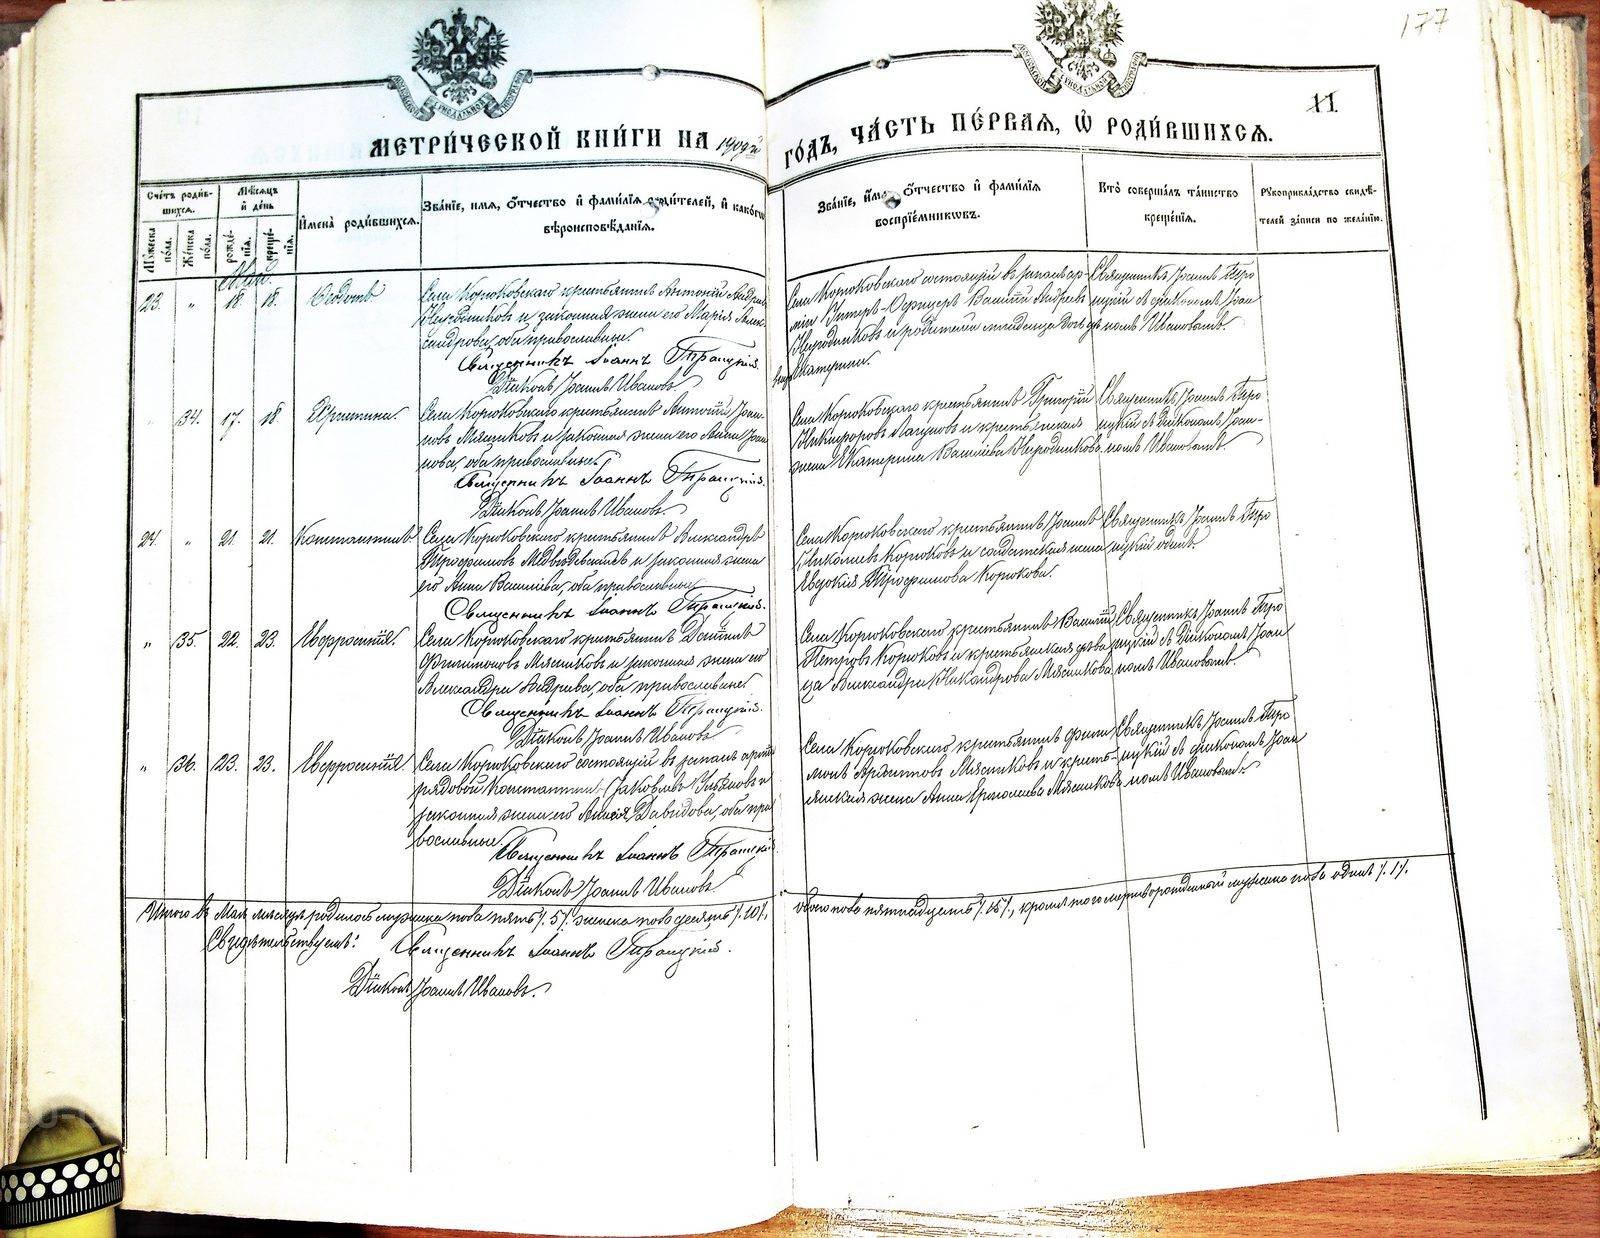 177
11.
МЕТРИ́ЧЕСКОЙ КНИ́ГИ НА 1909й ГО́ДЪ, ЧА́СТЬ ПЕ́РВАЯ, Ѡ РОДИ́ВШИХСѦ.
Сче́тъ роди́в-
шихся.
Му́жеска по́ла.
Же́нска по́ла.
Мѣ́сяцъ
и́ де́нь
рожде́-
нія.
креще́-
нія.
И҆мена̀ роди́вшихся.
Зва́ніе, имя, о҆́тчество и҆ фами́лія роди́телей, и҆ како́гѡ
вѣроисповѣ́данія.
Зва́ніе, и҆́мя, о҆́тчество и҆ фами́лія
воспріе́мникѡвъ.
Кто̀ соверша́лъ та́инство
креще́нія.
Рꙋкоприкла́дство свидѣ́-
телей за́писи по жела́нію.
Май.
23. " 18. 18. Ѳеодотъ
Села Корюковскаго крестьянинъ Антоній Андреевъ
и законная жена его Марія Алек-
сандрова, оба православные.
Священникъ Іоаннъ Троицкій.
Діаконъ Іоаннъ Ивановъ.
Села Корюковскаго состоящій в запасѣ ар-
міи Унтеръ-Офицеръ Василій Андреевъ
Екатерина.
Священникъ Іоаннъ Тро-
ицкій съ діакономъ Іоан-
номъ Ивановымъ.
" 34. 17. 18. Христина.
Села Корюковскаго крестьянинъ Антоній Іоан-
новъ Мясниковъ и законная жена его Анна Іоан-
нова, оба православные.
Священникъ Іоаннъ Троицкій.
Діаконъ Іоаннъ Ивановъ.
Села Корюковскаго крестьянинъ Григорій
Никифоровъ и крестьянская
жена Екатерина Васильева
Священникъ Іоаннъ Тро-
ицкій съ Діакономъ Іоан-
номъ Ивановымъ.
24. " 21. 21. Константинъ
Села Корюковскаго крестьянинъ Александръ
Трофимовъ и законная жена
его Анна Васильева, оба православные.
Священникъ Іоаннъ Троицкій.
Села Корюковскаго крестьянинъ Іоаннъ
Николаевъ Корюковъ и солдатская жена
Евдокія Трофимова Корюкова.
Священникъ Іоаннъ Тро-
ицкій одинъ.
" 35. 22. 23. Евфросинія.
Села Корюковскаго крестьянинъ Даніилъ
Филимоновъ Мясниковъ и законная жена его
Александра Андреева, оба православные.
Священникъ Іоаннъ Троицкій.
Діаконъ Іоаннъ Ивановъ
Села Корюковскаго крестьянинъ Василій
Петровъ Корюковъ и крестьянская дѣви-
ца Александра Никандрова Мясникова.
Священникъ Іоаннъ Тро-
ицкій съ Діакономъ Іоан-
номъ Ивановымъ.
" 36. 23. 23. Евфросинія.
Села Корюковскаго состоящій въ запасѣ арміи
рядовой Константинъ Іаковлевъ Ульяновъ и
законная жена его Давидова, оба пра-
вославные.
Священникъ Іоаннъ Троицкій.
Діаконъ Іоаннъ Ивановъ
Села Корюковскаго крестьянинъ Фили-
монъ Архиповъ Мясниковъ и кресть-
янская жена Анна Ермолаева Мясникова.
Священникъ Іоаннъ Тро-
ицкій съ діакономъ Іоан-
номъ Ивановымъ.
Итого въ Маѣ мѣсяцѣ родилось мужеска пола пять /5/, женска пола десять /10/, обоего пола пятнадцать /15/, кромѣ того мертворожденный мужска пола одинъ /1/.
Свидѣтельствуемъ: Священникъ Іоаннъ Троицкій.
Діаконъ Іоаннъ Ивановъ.